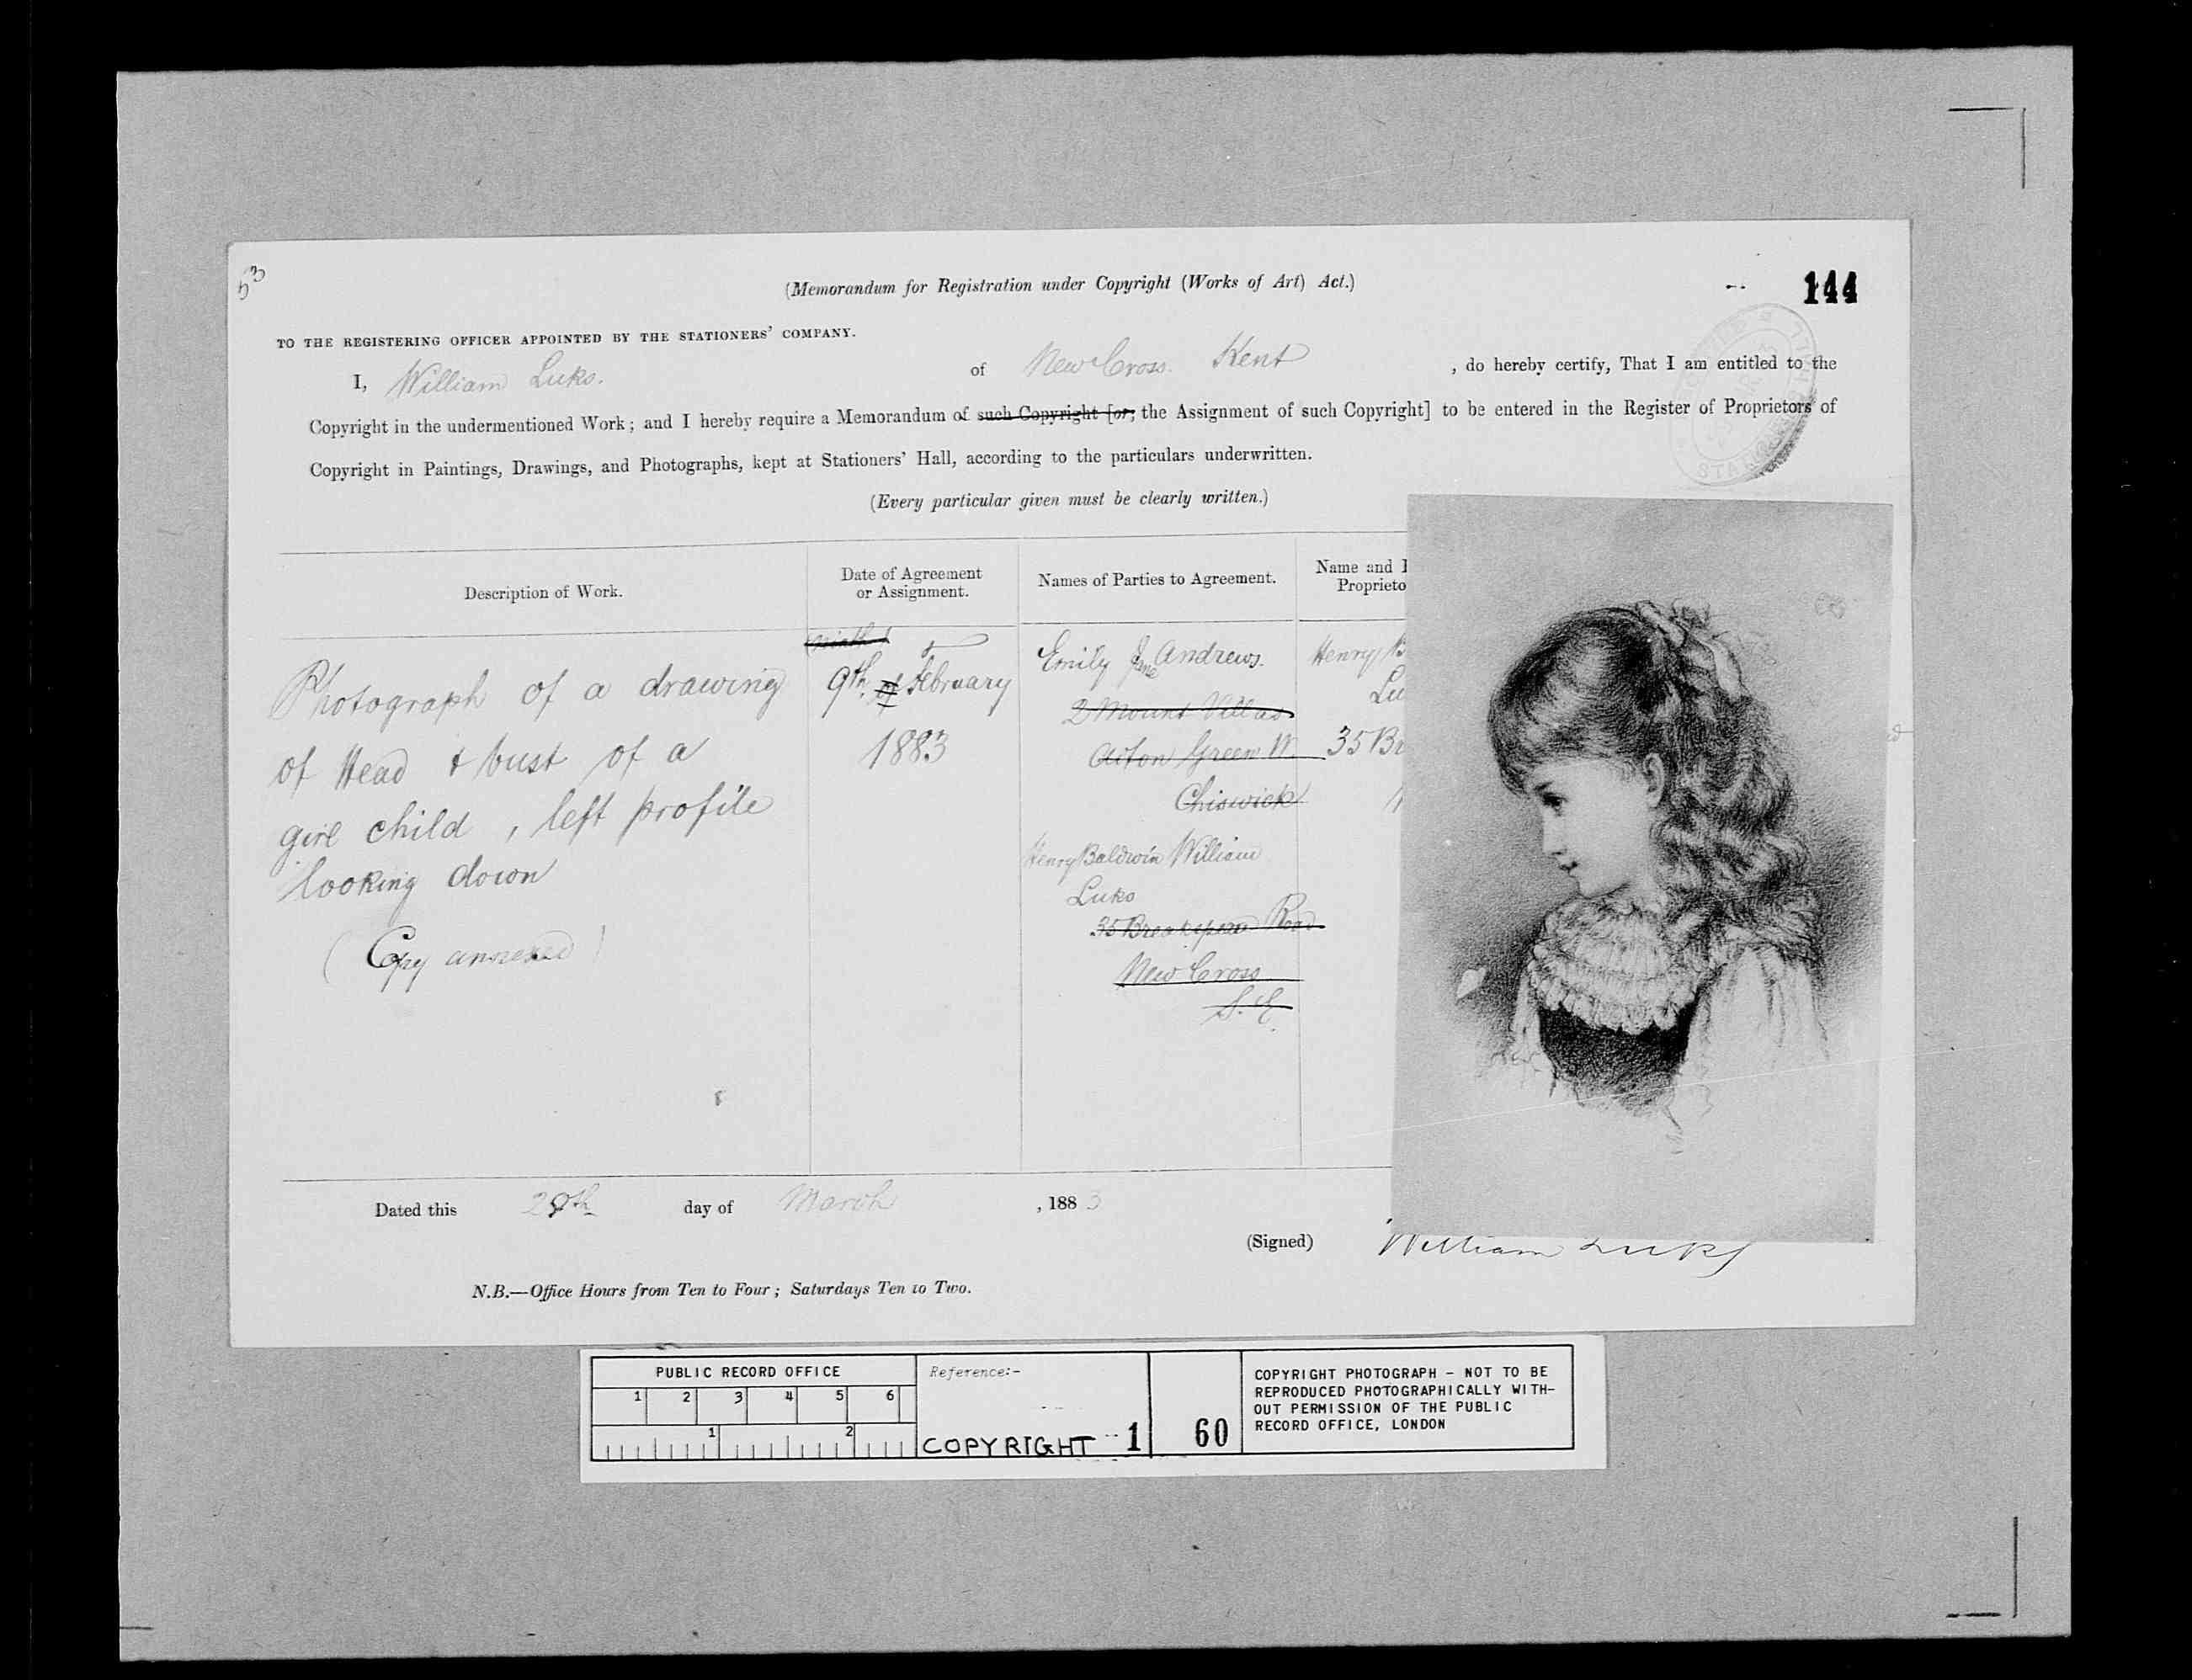 53
(Memorandum for Registration under Copyright (Works of Art) Act.)
144
TO THE REGISTERING OFFICER APPOINTED BY THE STATIONERS' COMPANY.
I, William Luks. of New Cross. Kent , do hereby certify, That I am entitled to the
Copyright in the undermentioned Work; and I hereby require a Memorandum of such Copyright [or, the Assignment of such Copyright] to be entered in the Register of Proprietors of
Copyright in Paintings, Drawings, and Photographs, kept at Stationers' Hall, according to the particulars underwritten.
(Every particular given must be clearly written.)
Description of Work.
Photograph of a drawing
of Head & bust of a
girl child, left profile
looking down
(Copy annexed)
Date of Agreement
or Assignment.
ninth
9th of February
1883
Names of Parties to Agreement.
Emily Jane Andrews.
2 Mount Villas
Acton Green W.
Chiswick
Henry Baldwin William
Luks
35 Breakspear Road
New Cross
S.E.
Name and
Proprieto
Henry B
Lu
35 Br
Dated this 28th day of March , 1883
(Signed) William Luks
N.B.—Office Hours from Ten to Four; Saturdays Ten to Two.
PUBLIC RECORD OFFICE
1 2 3 4 5 6
1 2
Reference:-
COPYRIGHT 1 60
COPYRIGHT PHOTOGRAPH - NOT TO BE
REPRODUCED PHOTOGRAPHICALLY WITH-
OUT PERMISSION OF THE PUBLIC
RECORD OFFICE, LONDON